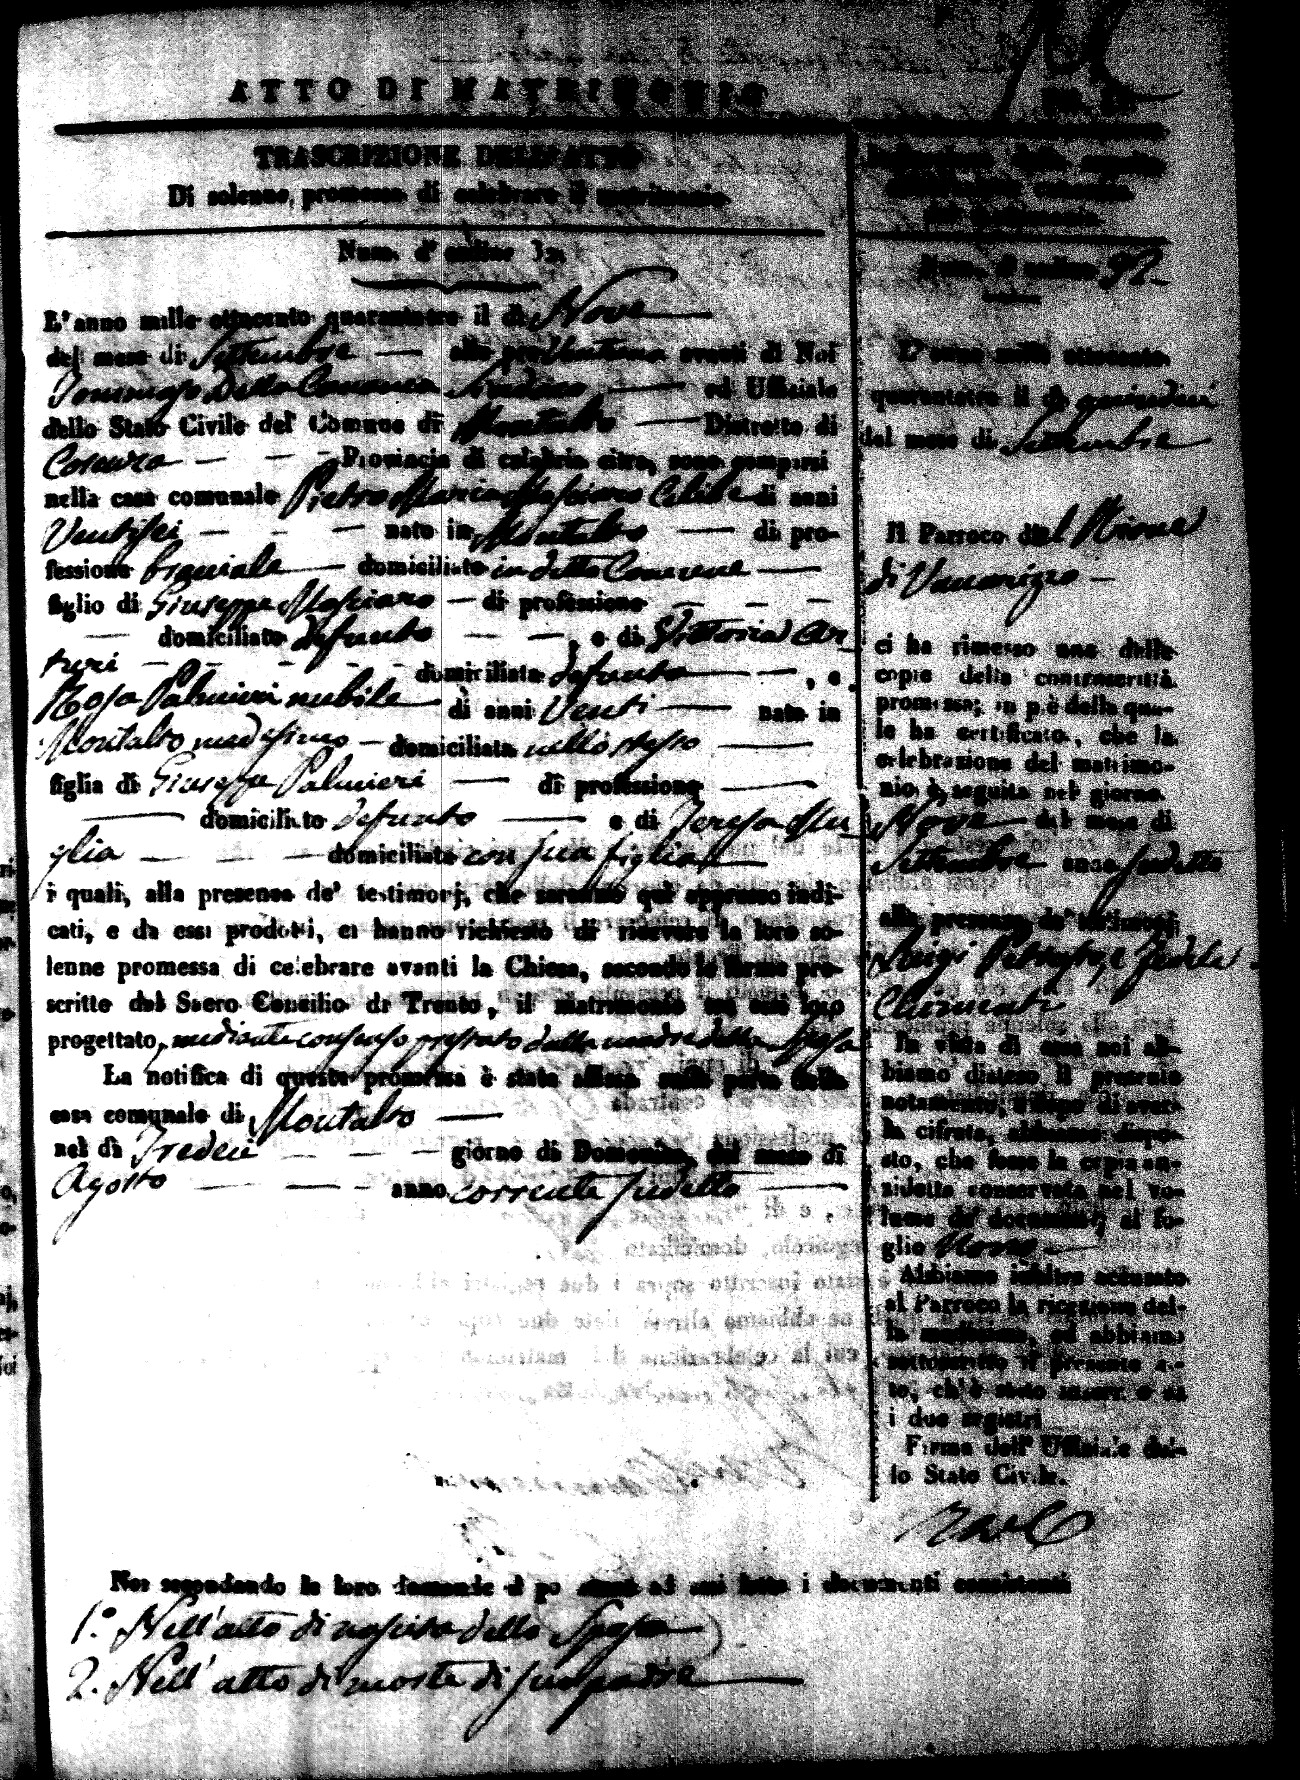 ATTO DI MATRIMONIO
TRASCRIZIONE DELL'ATTO
Di solenne promessa di celebrare il matrimonio
Num. d' ordine
L'anno mille ottocento quarantatre il dì Nove
del mese di Settembre — alle ore avanti di Noi
Tommaso Della Sindaco — ed Uffiziale
dello Stato Civile del Comune di Montalto — Distretto di
Cosenza — — — Provincia di calabria citra, sono comparsi
nella casa comunale Pietro Maria Celibe di anni
Ventisei — — — nato in Montalto — di pro-
fessione braciale — domiciliato in detto Comune —
figlio di Giuseppe — di professione — — —
— domiciliato defunto — —, e di Vittoria Ar-
turi — — — — domiciliata defunta — —, e
Rosa Palmieri nubile — di anni Venti — nata in
Montalto medesimo — domiciliata nello stesso —
figlia di Giuseppe Palmieri — di professione —
— domiciliato defunto — e di Teresa
glia — — — domiciliata con sua figlia —
i quali, alla presenza de' testimonj, che saranno qui appresso indi-
cati, e da essi prodotti, ci hanno richiesto di ricevere la loro so-
lenne promessa di celebrare avanti la Chiesa, secondo le forme pre-
scritte dal Sacro Concilio di Trento, il matrimonio tra essi loro
progettato, mediante consenso prestato dalla madre della Sposa
La notifica di questa promessa è stata affissa sulla porta della
casa comunale di Montalto —
nel dì Tredeci — — — giorno di Domenica, del mese di
Agosto — — — anno corrente sudetto —
Num. d' ordine 92
L' anno mille ottocento
quarantatre il dì quindici
del mese di Settembre
Il Parroco del Rione
di —
ci ha rimesso una delle
copie della controscritta
promessa; in piè della qua-
le ha certificato, che la
celebrazione del matrimo-
nio è seguita nel giorno
Nove — del mese di
Settembre anno sudetto
alla presenza de' testimonj
Luigi e Fedele
Chimenti
In vista di essa noi ab-
biamo disteso il presente
notamento, e dopo di aver-
la cifrata, abbiamo dispo-
sto, che fosse la copia an-
zidetta conservata nel vo-
lume de' documenti al fo-
glio Nono —
Abbiamo inoltre accusato
al Parroco la ricezione del-
la medesima, ed abbiamo
sottoscritto il presente at-
to, ch'è stato inscritto su
i due registri
Firma dell' Uffiziale del-
lo Stato Civile.
Noi secondando le loro domande dopo di aver ad essi letto i documenti consistenti
1.° Nell'atto di nascita dello Sposo
2. Nell'atto di morte di suo padre —